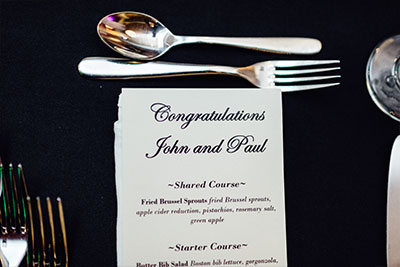 Congratulations
John and Paul
~Shared Course~
Fried Brussel Sprouts fried Brussel sprouts,
apple cider reduction, pistachios, rosemary salt,
green apple
~Starter Course~
Butter Bib Salad Boston bib lettuce, gorgonzola,